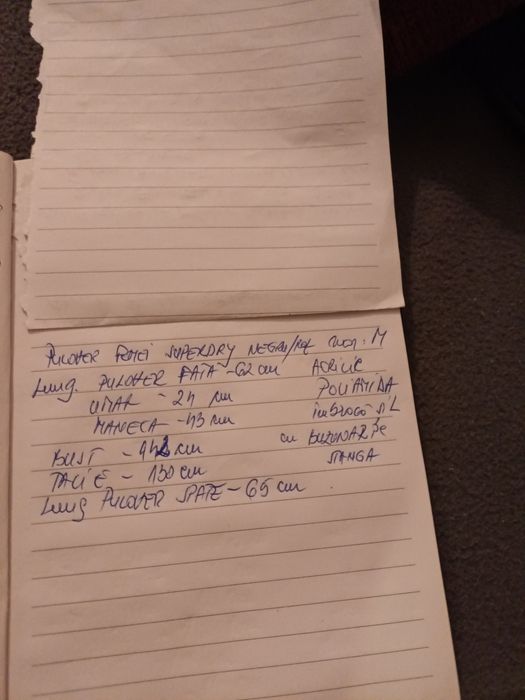 PULOVER FEMEI SUPERDRY NEGRU/ M
Lung PULOVER FATA -62 cm ACRILIC
UMAR - 24 cm POLIAMIDA
MANECA - 43 cm
BUST - cm cu BUZUNAR PE
TALIE - 130 cm STANGA
Lung PULOVER SPATE - 65 cm